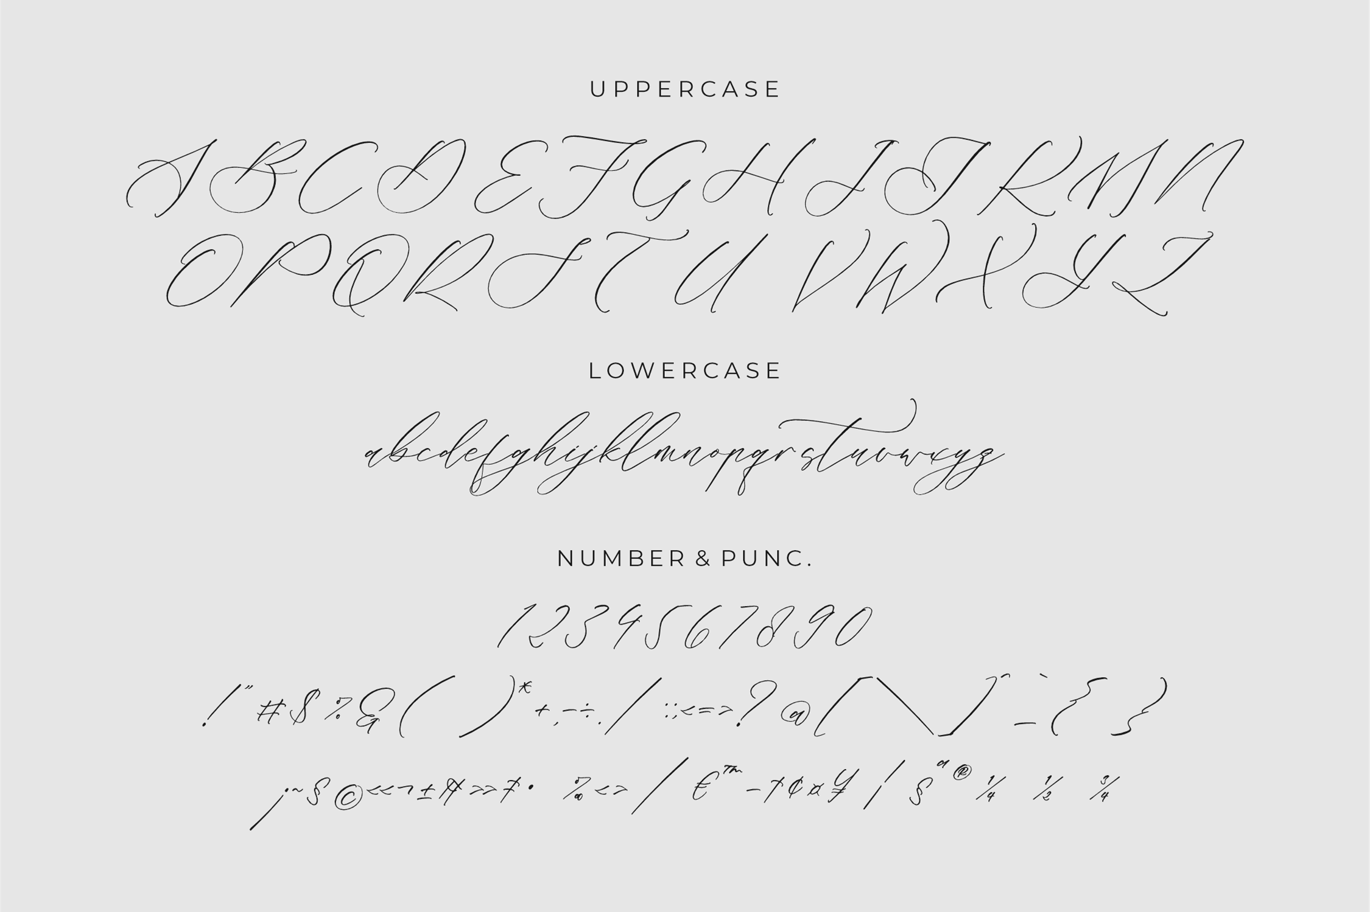 UPPERCASE
ABCDEFGHIJKMN
OPQRSTU VWXYZ
LOWERCASE
abcdefghijklmnopqrstuvwxyz
NUMBER & PUNC.
1234567890
!"#$%&()*+,-÷./:;<=>?@[\]^_`{}
¡~§©«¬±»• ‰<> / €™-†¢¤¥ | §ª® ¼ ½ ¾